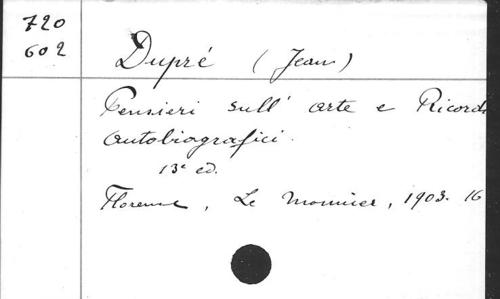 720
602
Dupré (Jean)
Pensieri sull' arte e Ricordi
autobiografici.
13e ed.
Florence, Le Monnier, 1903. 16